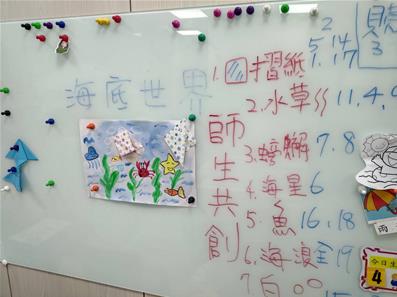 海底世界
師生共創
2
5. 14
1. 17
3
1. 摺紙
2. 水草 11, 4, 9
3. 螃蟹 7. 8
4. 海星 6
5. 魚 16, 18
6. 海浪 全 19
7. 白
雨
今日生
4